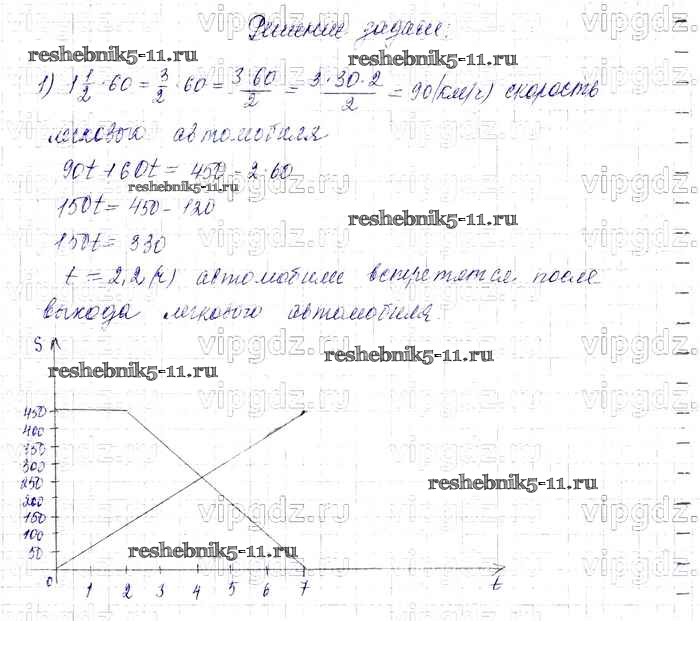 Решение задачи:
1) 1 1/2 · 60 = 3/2 · 60 = 3·60/2 = 3·30·2/2 = 90 (км/ч) скорость
легкового автомобиля
90t + 60t = 450 - 2·60
150t = 450 - 120
150t = 330
t = 2,2 (ч) автомобили встретятся после
выхода легкового автомобиля.
S
450
400
350
300
250
200
150
100
50
0 1 2 3 4 5 6 7 t
reshebnik5-11.ru
reshebnik5-11.ru
reshebnik5-11.ru
reshebnik5-11.ru
reshebnik5-11.ru
reshebnik5-11.ru
reshebnik5-11.ru
reshebnik5-11.ru
vipgdz.ru
vipgdz.ru
vipgdz.ru